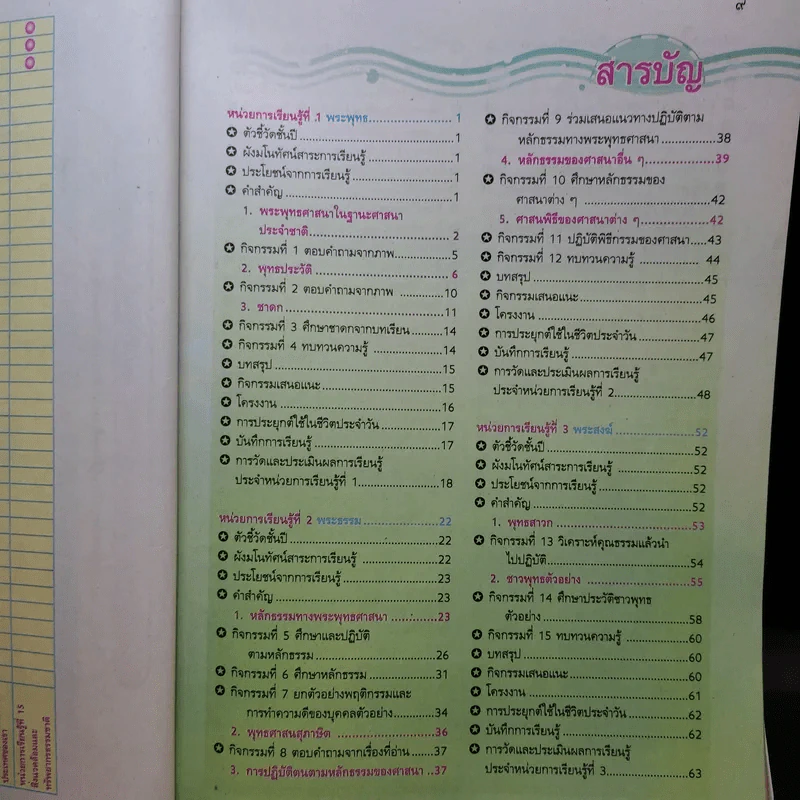 ๙
สารบัญ
หน่วยการเรียนรู้ที่ 1 พระพุทธ........................ 1
✪ ตัวชี้วัดชั้นปี..........................................1
✪ ผังมโนทัศน์สาระการเรียนรู้......................1
✪ ประโยชน์จากการเรียนรู้..........................1
✪ คำสำคัญ..............................................1
1. พระพุทธศาสนาในฐานะศาสนา
ประจำชาติ.......................................... 2
✪ กิจกรรมที่ 1 ตอบคำถามจากภาพ..............5
2. พุทธประวัติ........................................ 6
✪ กิจกรรมที่ 2 ตอบคำถามจากภาพ ...........10
3. ชาดก................................................11
✪ กิจกรรมที่ 3 ศึกษาชาดกจากบทเรียน......14
✪ กิจกรรมที่ 4 ทบทวนความรู้ ..................14
✪ บทสรุป..............................................15
✪ กิจกรรมเสนอแนะ................................15
✪ โครงงาน ...........................................16
✪ การประยุกต์ใช้ในชีวิตประจำวัน...............17
✪ บันทึกการเรียนรู้..................................17
✪ การวัดและประเมินผลการเรียนรู้
ประจำหน่วยการเรียนรู้ที่ 1.....................18
หน่วยการเรียนรู้ที่ 2 พระธรรม.....................22
✪ ตัวชี้วัดชั้นปี........................................22
✪ ผังมโนทัศน์สาระการเรียนรู้ ...................22
✪ ประโยชน์จากการเรียนรู้........................23
✪ คำสำคัญ............................................23
1. หลักธรรมทางพระพุทธศาสนา .............23
✪ กิจกรรมที่ 5 ศึกษาและปฏิบัติ
ตามหลักธรรม.................................26
✪ กิจกรรมที่ 6 ศึกษาหลักธรรม..................31
✪ กิจกรรมที่ 7 ยกตัวอย่างพฤติกรรมและ
การทำความดีของบุคคลตัวอย่าง...........34
2. พุทธศาสนสุภาษิต .............................36
✪ กิจกรรมที่ 8 ตอบคำถามจากเรื่องที่อ่าน....37
3. การปฏิบัติตนตามหลักธรรมของศาสนา ..37
✪ กิจกรรมที่ 9 ร่วมเสนอแนวทางปฏิบัติตาม
หลักธรรมทางพระพุทธศาสนา ..............38
4. หลักธรรมของศาสนาอื่น ๆ...................39
✪ กิจกรรมที่ 10 ศึกษาหลักธรรมของ
ศาสนาต่าง ๆ .................................42
5. ศาสนพิธีของศาสนาต่าง ๆ...................42
✪ กิจกรรมที่ 11 ปฏิบัติพิธีกรรมของศาสนา.....43
✪ กิจกรรมที่ 12 ทบทวนความรู้ ................. 44
✪ บทสรุป...............................................45
✪ กิจกรรมเสนอแนะ.................................45
✪ โครงงาน.............................................46
✪ การประยุกต์ใช้ในชีวิตประจำวัน................47
✪ บันทึกการเรียนรู้...................................47
✪ การวัดและประเมินผลการเรียนรู้
ประจำหน่วยการเรียนรู้ที่ 2......................48
หน่วยการเรียนรู้ที่ 3 พระสงฆ์ .....................52
✪ ตัวชี้วัดชั้นปี.........................................52
✪ ผังมโนทัศน์สาระการเรียนรู้ ....................52
✪ ประโยชน์จากการเรียนรู้.........................52
✪ คำสำคัญ.............................................52
1. พุทธสาวก ..........................................53
✪ กิจกรรมที่ 13 วิเคราะห์คุณธรรมแล้วนำ
ไปปฏิบัติ........................................54
2. ชาวพุทธตัวอย่าง ................................55
✪ กิจกรรมที่ 14 ศึกษาประวัติชาวพุทธ
ตัวอย่าง..........................................58
✪ กิจกรรมที่ 15 ทบทวนความรู้ ..................60
✪ บทสรุป...............................................60
✪ กิจกรรมเสนอแนะ.................................60
✪ โครงงาน.............................................61
✪ การประยุกต์ใช้ในชีวิตประจำวัน................62
✪ บันทึกการเรียนรู้...................................62
✪ การวัดและประเมินผลการเรียนรู้
ประจำหน่วยการเรียนรู้ที่ 3......................63
ประเทศของเรา
หน่วยการเรียนรู้ที่ 15
สิ่งแวดล้อมและ
ทรัพยากรธรรมชาติ